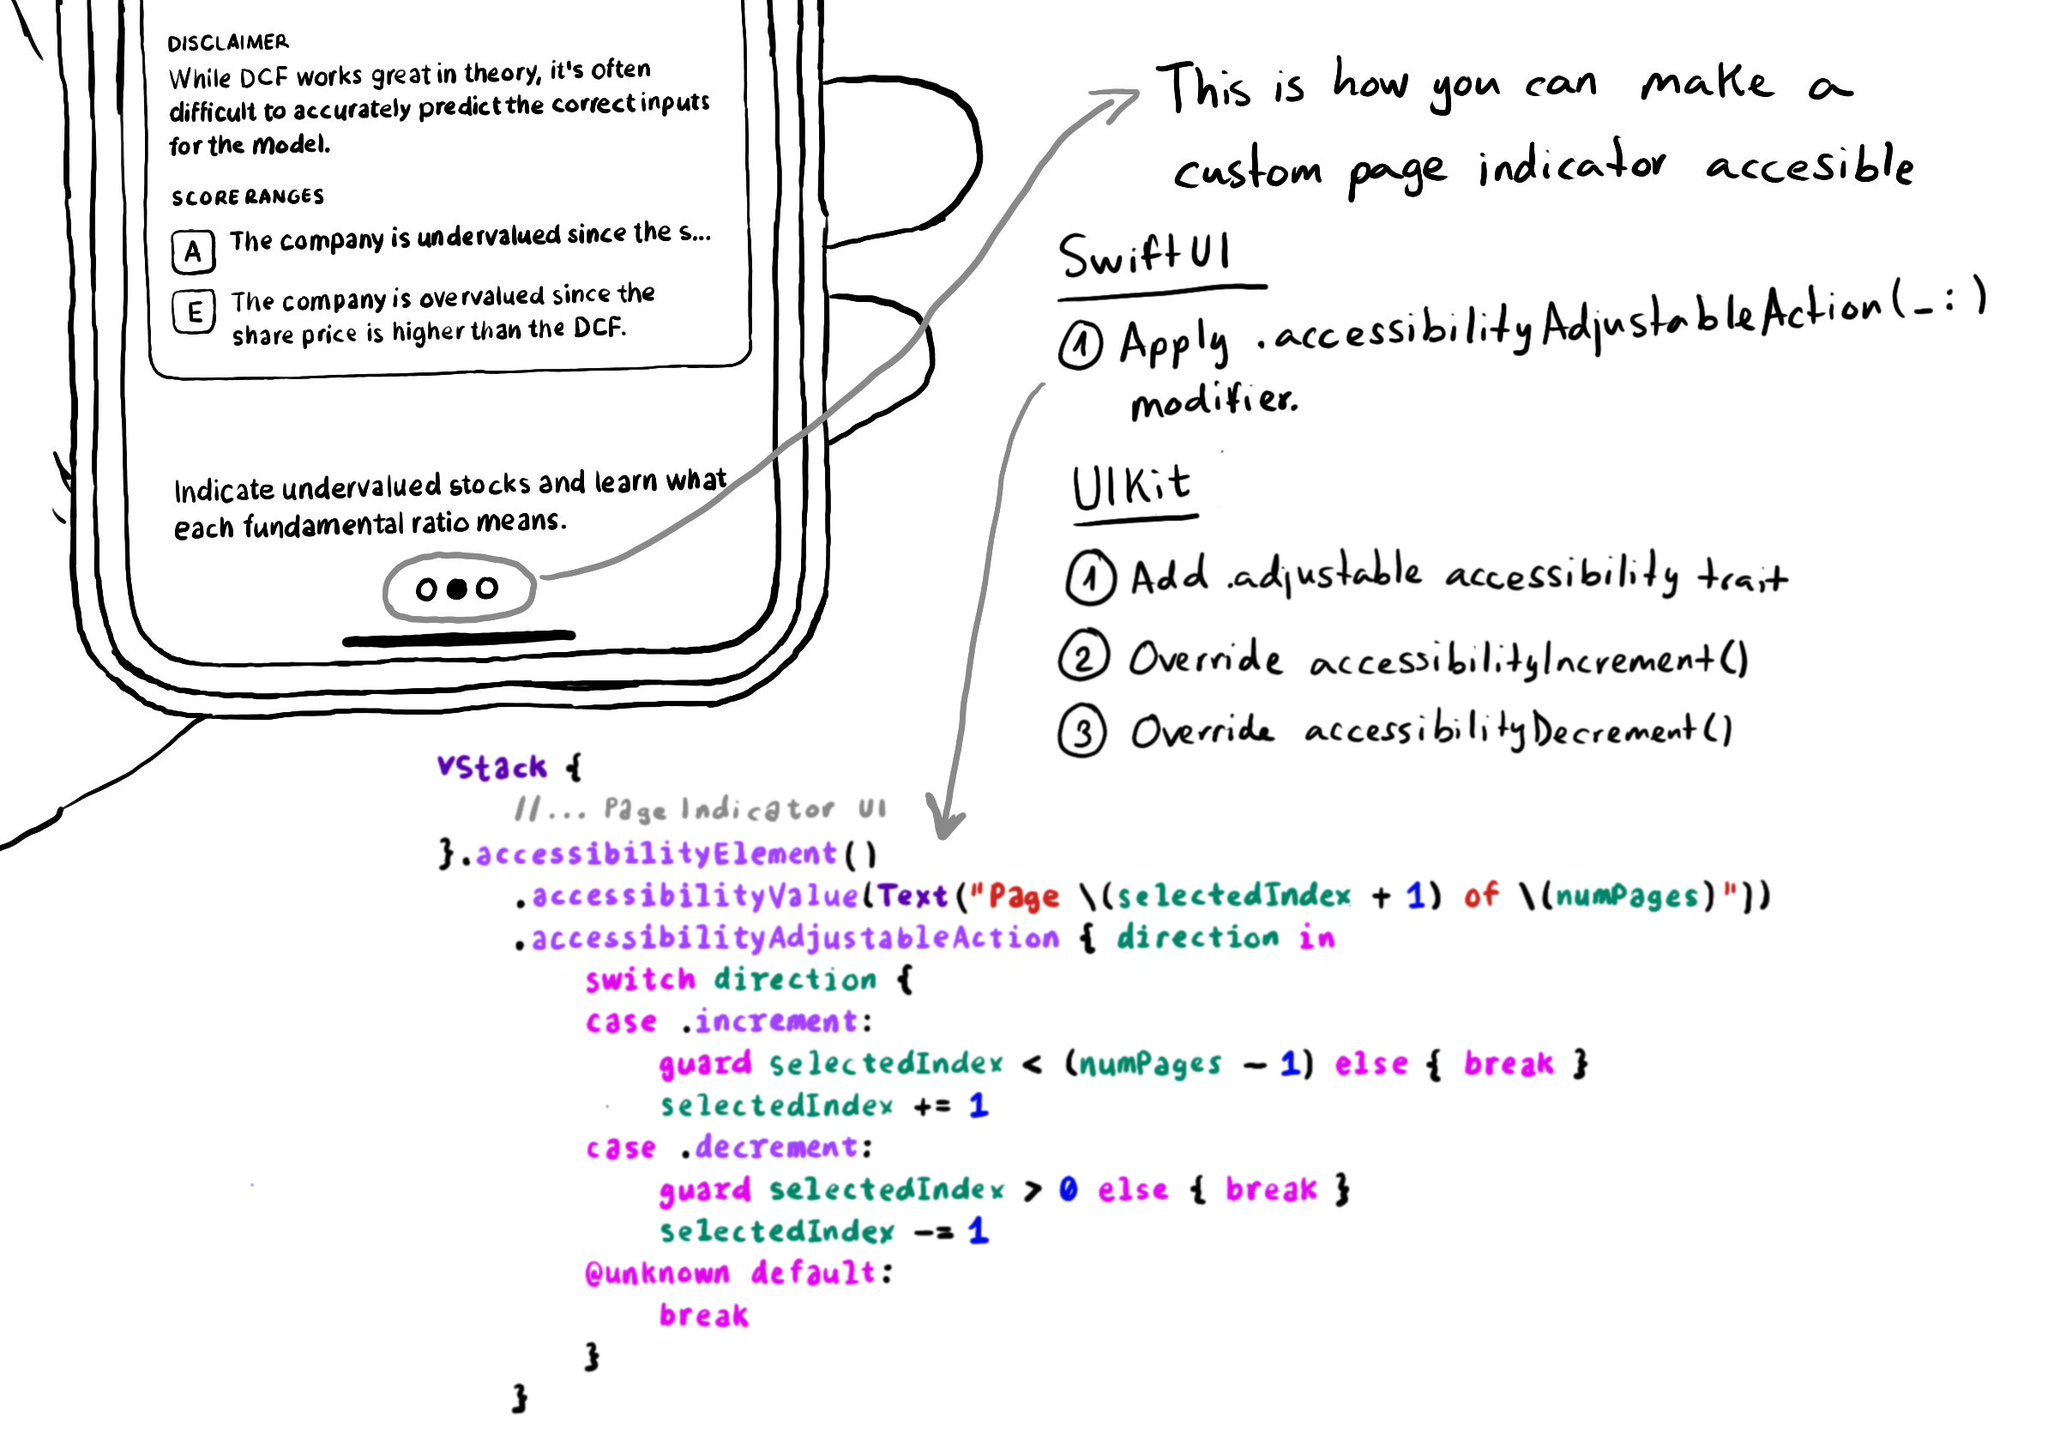 DISCLAIMER
While DCF works great in theory, it's often
difficult to accurately predict the correct inputs
for the model.
SCORE RANGES
A The company is undervalued since the s...
E The company is overvalued since the
share price is higher than the DCF.
Indicate undervalued stocks and learn what
each fundamental ratio means.
This is how you can make a
custom page indicator accesible
SwiftUI
1 Apply .accessibilityAdjustableAction(_:)
modifier.
UIKit
1 Add .adjustable accessibility trait
2 Override accessibilityIncrement()
3 Override accessibilityDecrement()
VStack {
//... Page Indicator UI
}.accessibilityElement()
.accessibilityValue(Text("Page \(selectedIndex + 1) of \(numPages)"))
.accessibilityAdjustableAction { direction in
switch direction {
case .increment:
guard selectedIndex < (numPages - 1) else { break }
selectedIndex += 1
case .decrement:
guard selectedIndex > 0 else { break }
selectedIndex -= 1
@unknown default:
break
}
}